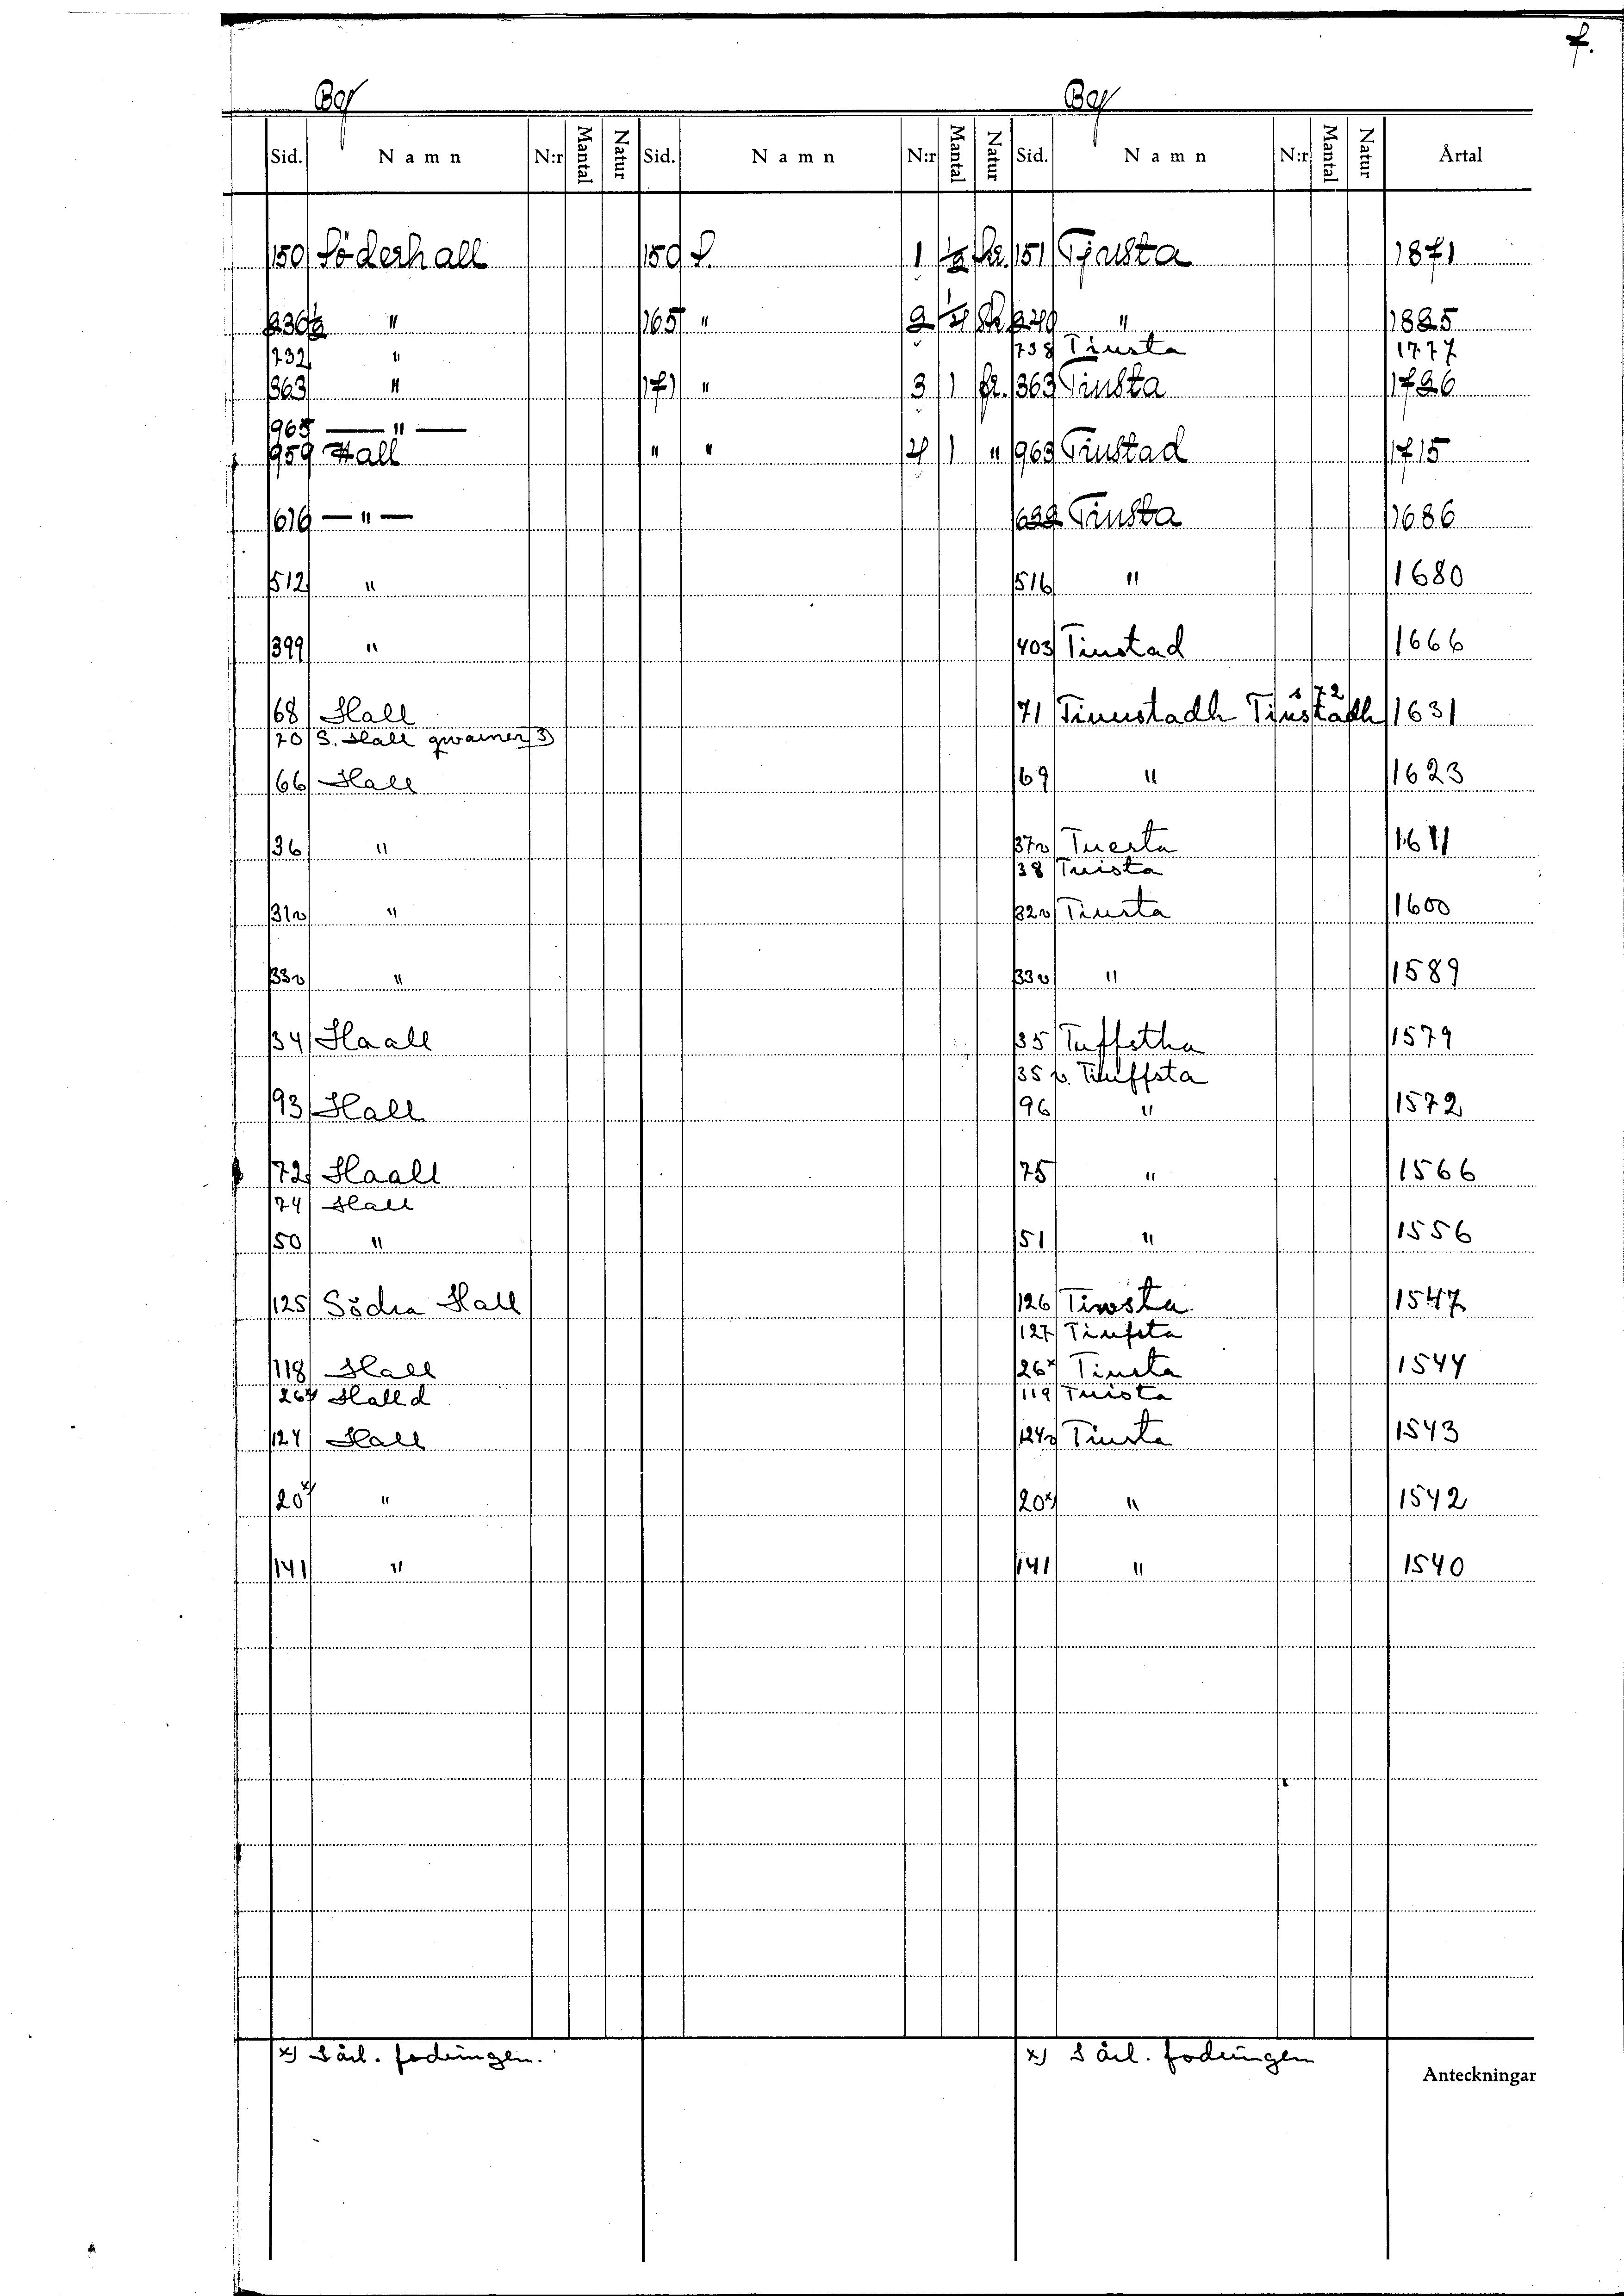 7.
By By
Sid. Namn N:r Mantal Natur Sid. Namn N:r Mantal Natur Sid. Namn N:r Mantal Natur Årtal
150 Söderhall 150 S. 1 1/2 kr. 151 Tjusta 1871
236 1/2 " 165 " 2 1/4 Sk 240 " 1825
732 " 738 Tiusta 1777
363 " 171 " 3 1 fr. 363 Tiusta 1726
965 — " —
959 Hall " " 4 1 " 963 Tiustad 1715
616 — " — 622 Tiusta 1686
512 " 516 " 1680
399 " 403 Tiustad 1666
s 72
68 Hall 71 Tiuustadh Tiustadh 1631
70 S. Hall qvarner 3
66 Hall 69 " 1623
36 " 37v Tuesta 1611
38 Tuista
31v " 32v Tiusta 1600
33v " 33v " 1589
34 Haall 35 Tuffstha 1579
35 v. Tiuffsta
93 Hall 96 " 1572
72 Haall 75 " 1566
74 Hall
50 " 51 " 1556
125 Södra Hall 126 Tiwsta 1547
127 Tiufsta
118 Hall 26x Tiusta 1544
26x) Halld 119 Tuista
124 Hall 124v Tiusta 1543
20x) " 20x) " 1542
141 " 141 " 1540
x) Särl. fodringen. x) Särl. fodringen
Anteckningar